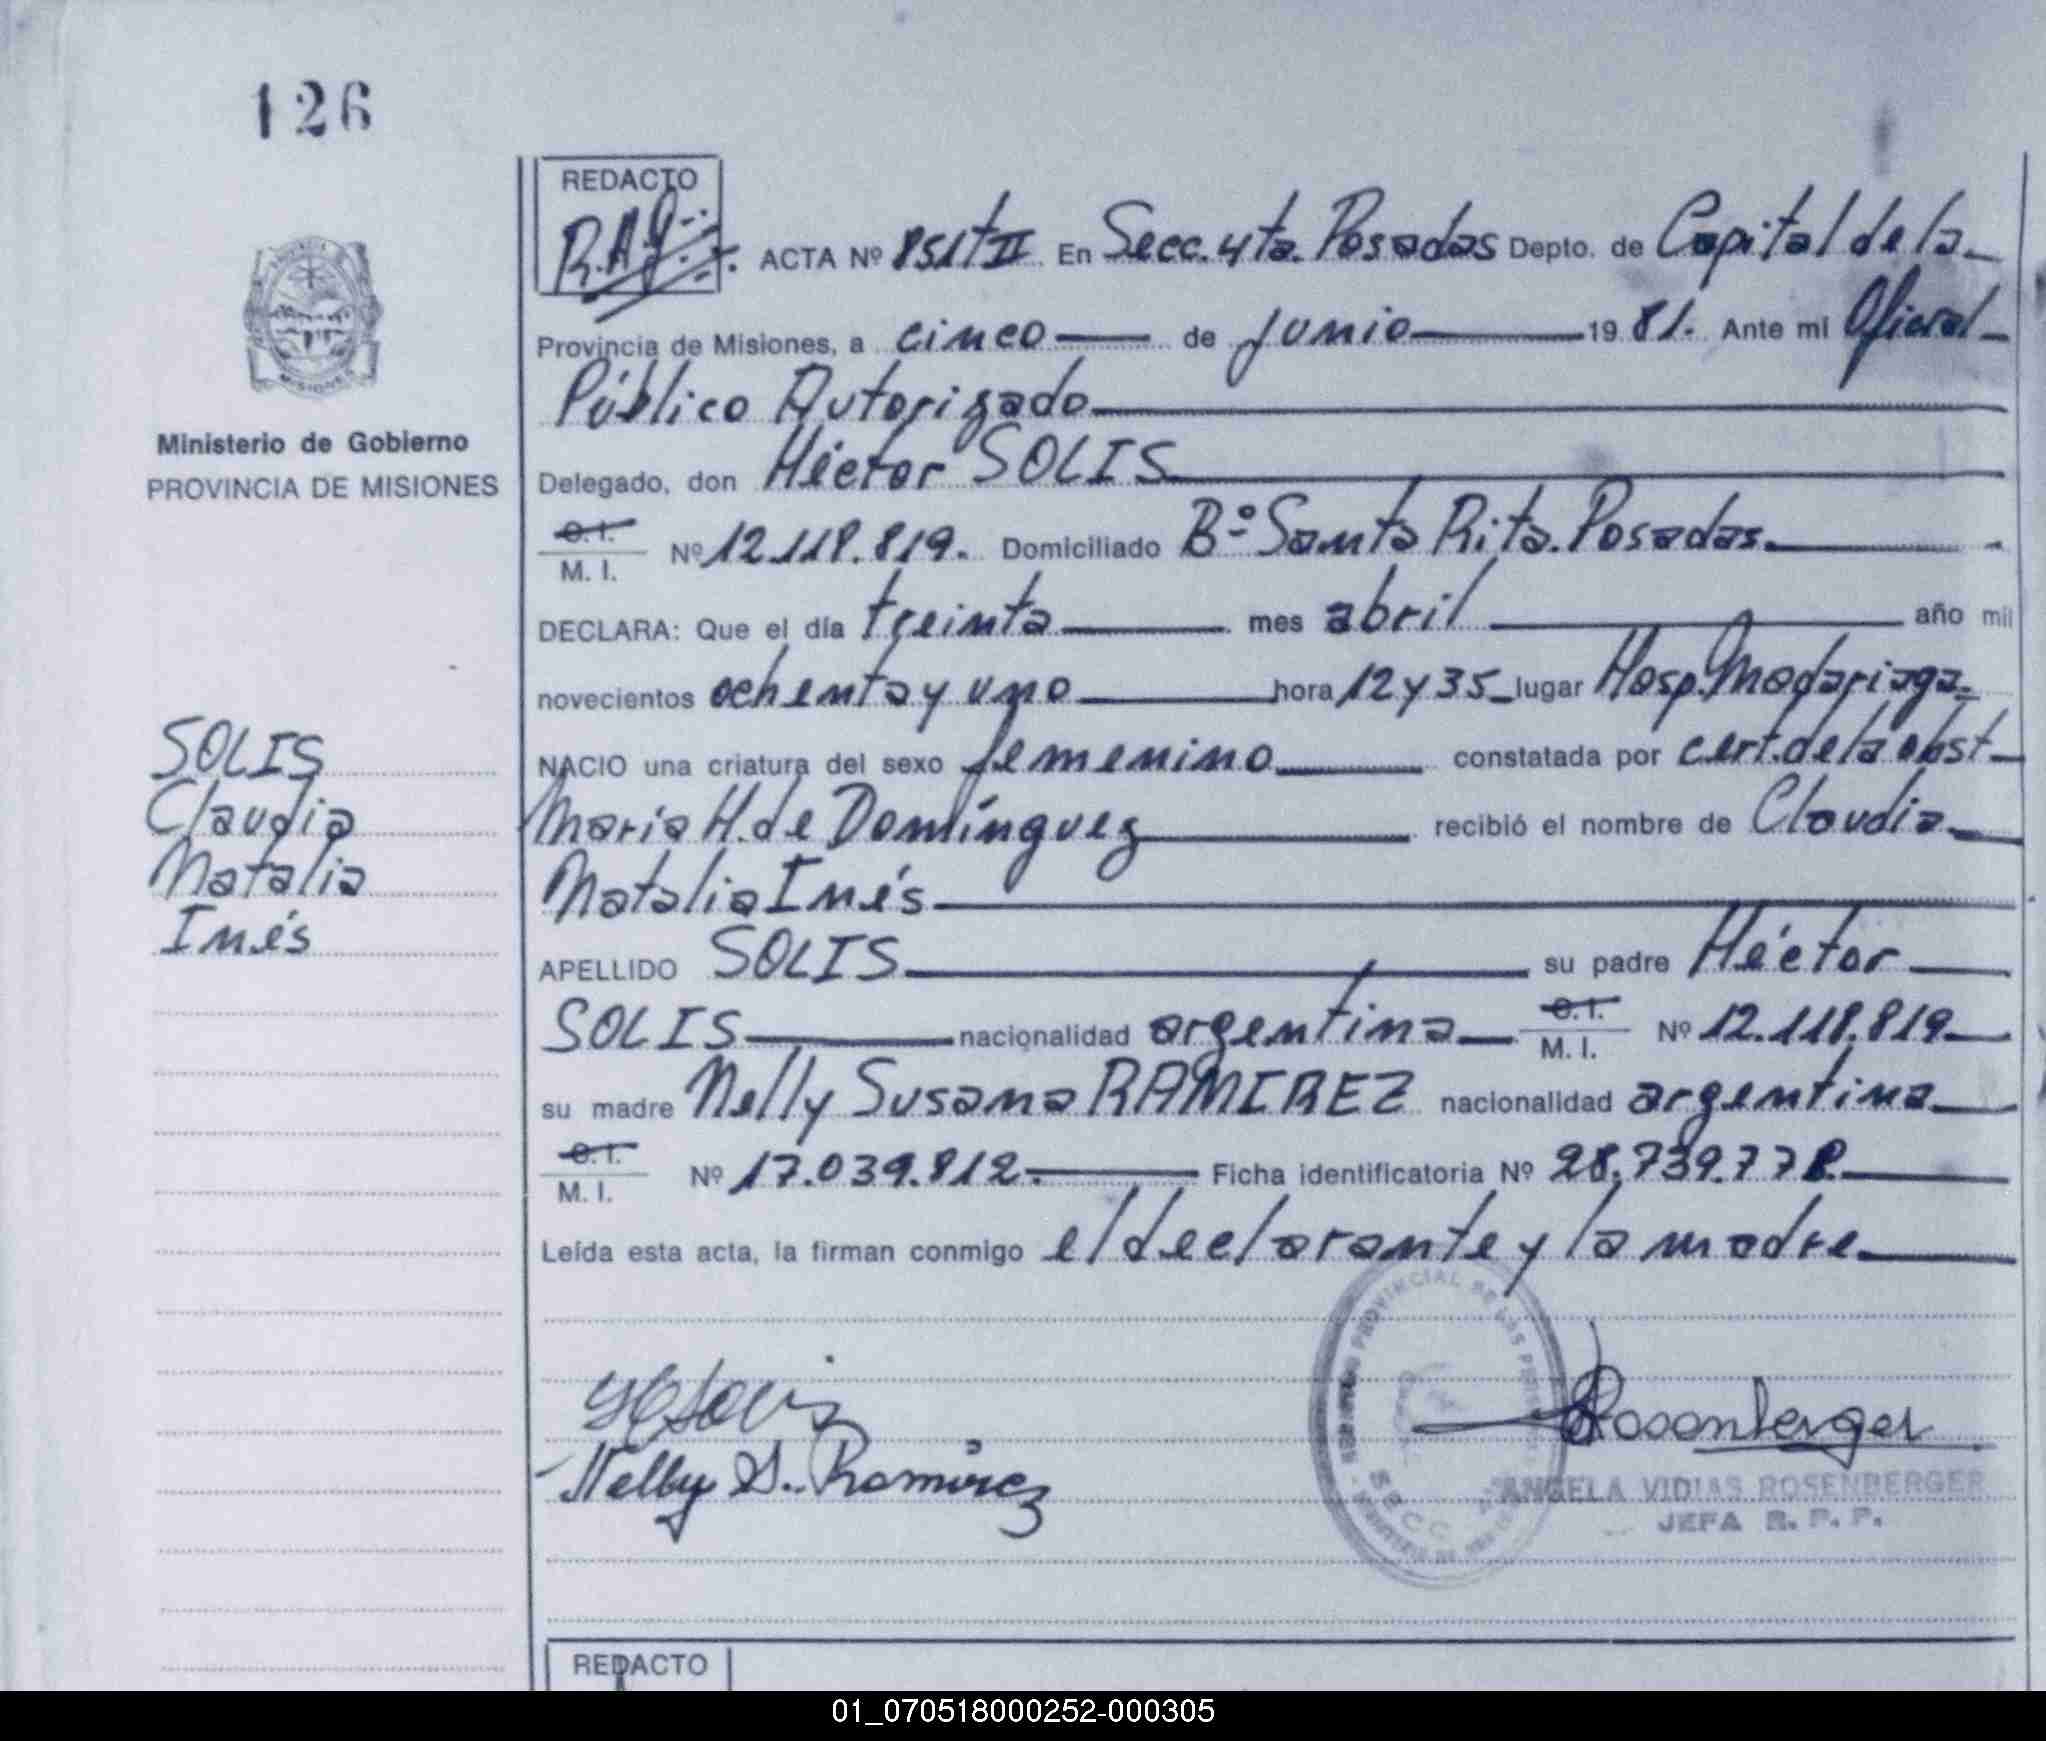 126
REDACTO
R.A.G.
ACTA Nº 851 tº II En Secc. 4ta. Posadas Depto. de Capital de la
Provincia de Misiones, a cinco de junio 19 81. Ante mi Oficial
Público Autorizado
Ministerio de Gobierno
PROVINCIA DE MISIONES
Delegado, don Héctor SOLIS
C.I.
M. I. Nº 12.118.819. Domiciliado Bº Santa Rita. Posadas.
DECLARA: Que el día treinta mes abril año mil
novecientos ochenta y uno hora 12 y 35 lugar Hosp. Madariaga
SOLIS
Claudia
Natalia
Inés
NACIO una criatura del sexo femenino constatada por cert. de la obst
María H. de Domínguez recibió el nombre de Claudia
Natalia Inés
APELLIDO SOLIS su padre Héctor
SOLIS nacionalidad argentina C.I. M. I. Nº 12.118.819
su madre Nelly Susana RAMIREZ nacionalidad argentina
C.I.
M. I. Nº 17.039.812. Ficha identificatoria Nº 28.739.778.
Leída esta acta, la firman conmigo el declarante y la madre
HSolis
Nelly S. Ramirez
PROVINCIAL DE LAS
SECC
Rosenberger
ANGELA VIDIAS ROSENBERGER
JEFA R. P. P.
REDACTO
01_070518000252-000305